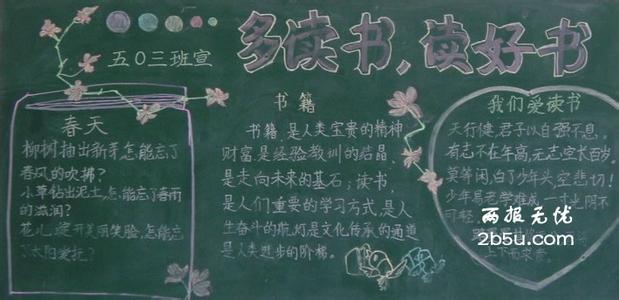 五〇三班宣
多读书,读好书
春天
柳树抽出新芽,怎能忘了
春风的吹拂?
小草钻出泥土,怎能忘了春雨
的滋润?
花儿绽开美丽笑脸,怎能忘
了太阳爱抚?
书籍
书籍是人类宝贵的精神
财富,是经验教训的结晶,
是走向未来的基石;读书,
是人们重要的学习方式,是人
生奋斗的航灯,是文化传承的通道,
是人类进步的阶梯。
我们爱读书
天行健,君子以自强不息。
有志不在年高,无志空长百岁。
莫等闲,白了少年头,空悲切!
少年易老学难成,一寸光阴不
可轻。
上下而求索。
两报无忧
2b5u.com